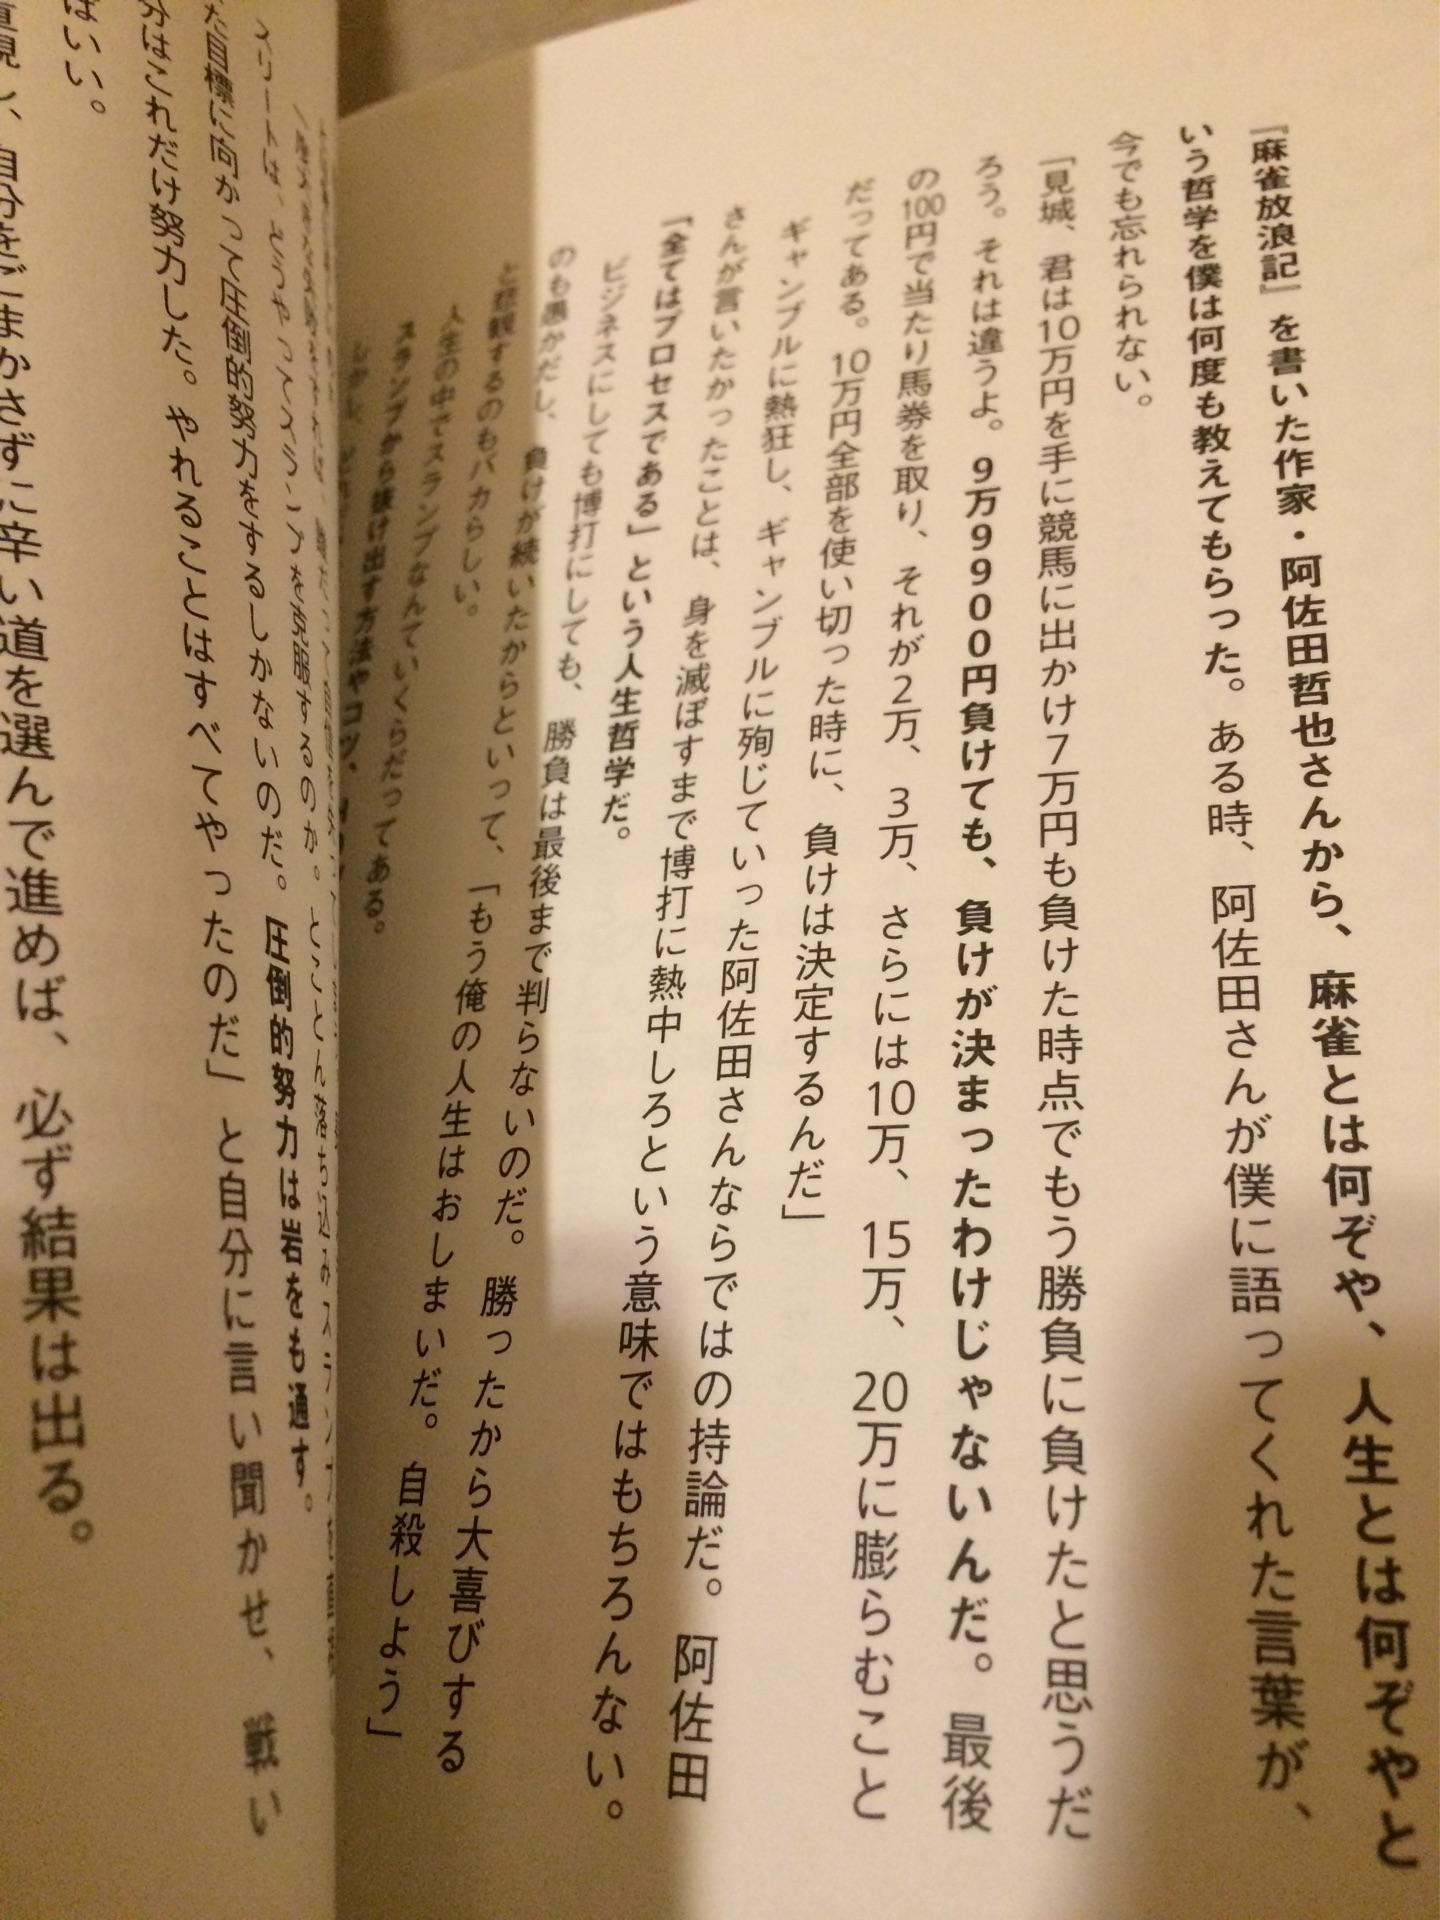 『麻雀放浪記』を書いた作家・阿佐田哲也さんから、麻雀とは何ぞや、人生とは何ぞやと
いう哲学を僕は何度も教えてもらった。ある時、阿佐田さんが僕に語ってくれた言葉が、
今でも忘れられない。
「見城、君は10万円を手に競馬に出かけ7万円も負けた時点でもう勝負に負けたと思うだ
ろう。それは違うよ。9万9900円負けても、負けが決まったわけじゃないんだ。最後
の100円で当たり馬券を取り、それが2万、3万、さらには10万、15万、20万に膨らむこと
だってある。10万円全部を使い切った時に、負けは決定するんだ」
ギャンブルに熱狂し、ギャンブルに殉じていった阿佐田さんならではの持論だ。阿佐田
さんが言いたかったことは、身を滅ぼすまで博打に熱中しろという意味ではもちろんない。
「全てはプロセスである」という人生哲学だ。
ビジネスにしても博打にしても、勝負は最後まで判らないのだ。勝ったから大喜びする
のも愚かだし、負けが続いたからといって、「もう俺の人生はおしまいだ。自殺しよう」
と悲観するのもバカらしい。
人生の中でスランプなんていくらだってある。
スランプから抜け出す方法やコツ、
どうやってスランプを克服するのか。とことん落ち込み
た目標に向かって圧倒的努力をするしかないのだ。圧倒的努力は岩をも通す。
分はこれだけ努力した。やれることはすべてやったのだ」と自分に言い聞かせ、戦い
ばいい。
直視し、自分をごまかさずに辛い道を選んで進めば、必ず結果は出る。